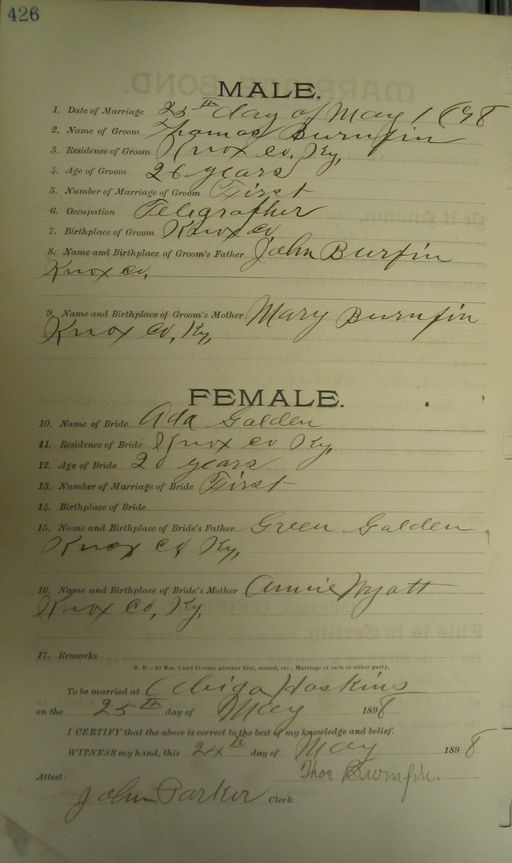 426
MALE.
1. Date of Marriage 25th day of May 1898
2. Name of Groom Thomas Burnfin
3. Residence of Groom Knox Co, Ky,
4. Age of Groom 26 years
5. Number of Marriage of Groom First
6. Occupation Telegrapher
7. Birthplace of Groom Knox Co
8. Name and Birthplace of Groom's Father John Burfin
Knox Co,
9. Name and Birthplace of Groom's Mother Mary Burnfin
Knox Co, Ky,
FEMALE.
10. Name of Bride Ada Golden
11. Residence of Bride Knox Co Ky,
12. Age of Bride 20 years
13. Number of Marriage of Bride First
14. Birthplace of Bride
15. Name and Birthplace of Bride's Father Green Golden
Knox Co Ky,
16. Name and Birthplace of Bride's Mother Annie Wyatt
Knox Co, Ky,
17. Remarks
N. B.—At Nos. 5 and 13 state whether first, second, etc., Marriage of each or either party.
To be married at Haskins
on the 25th day of May 1898
I CERTIFY that the above is correct to the best of my knowledge and belief.
WITNESS my hand, this 24th day of May 1898
Thos Burnfin.
Attest:
John Parker Clerk.